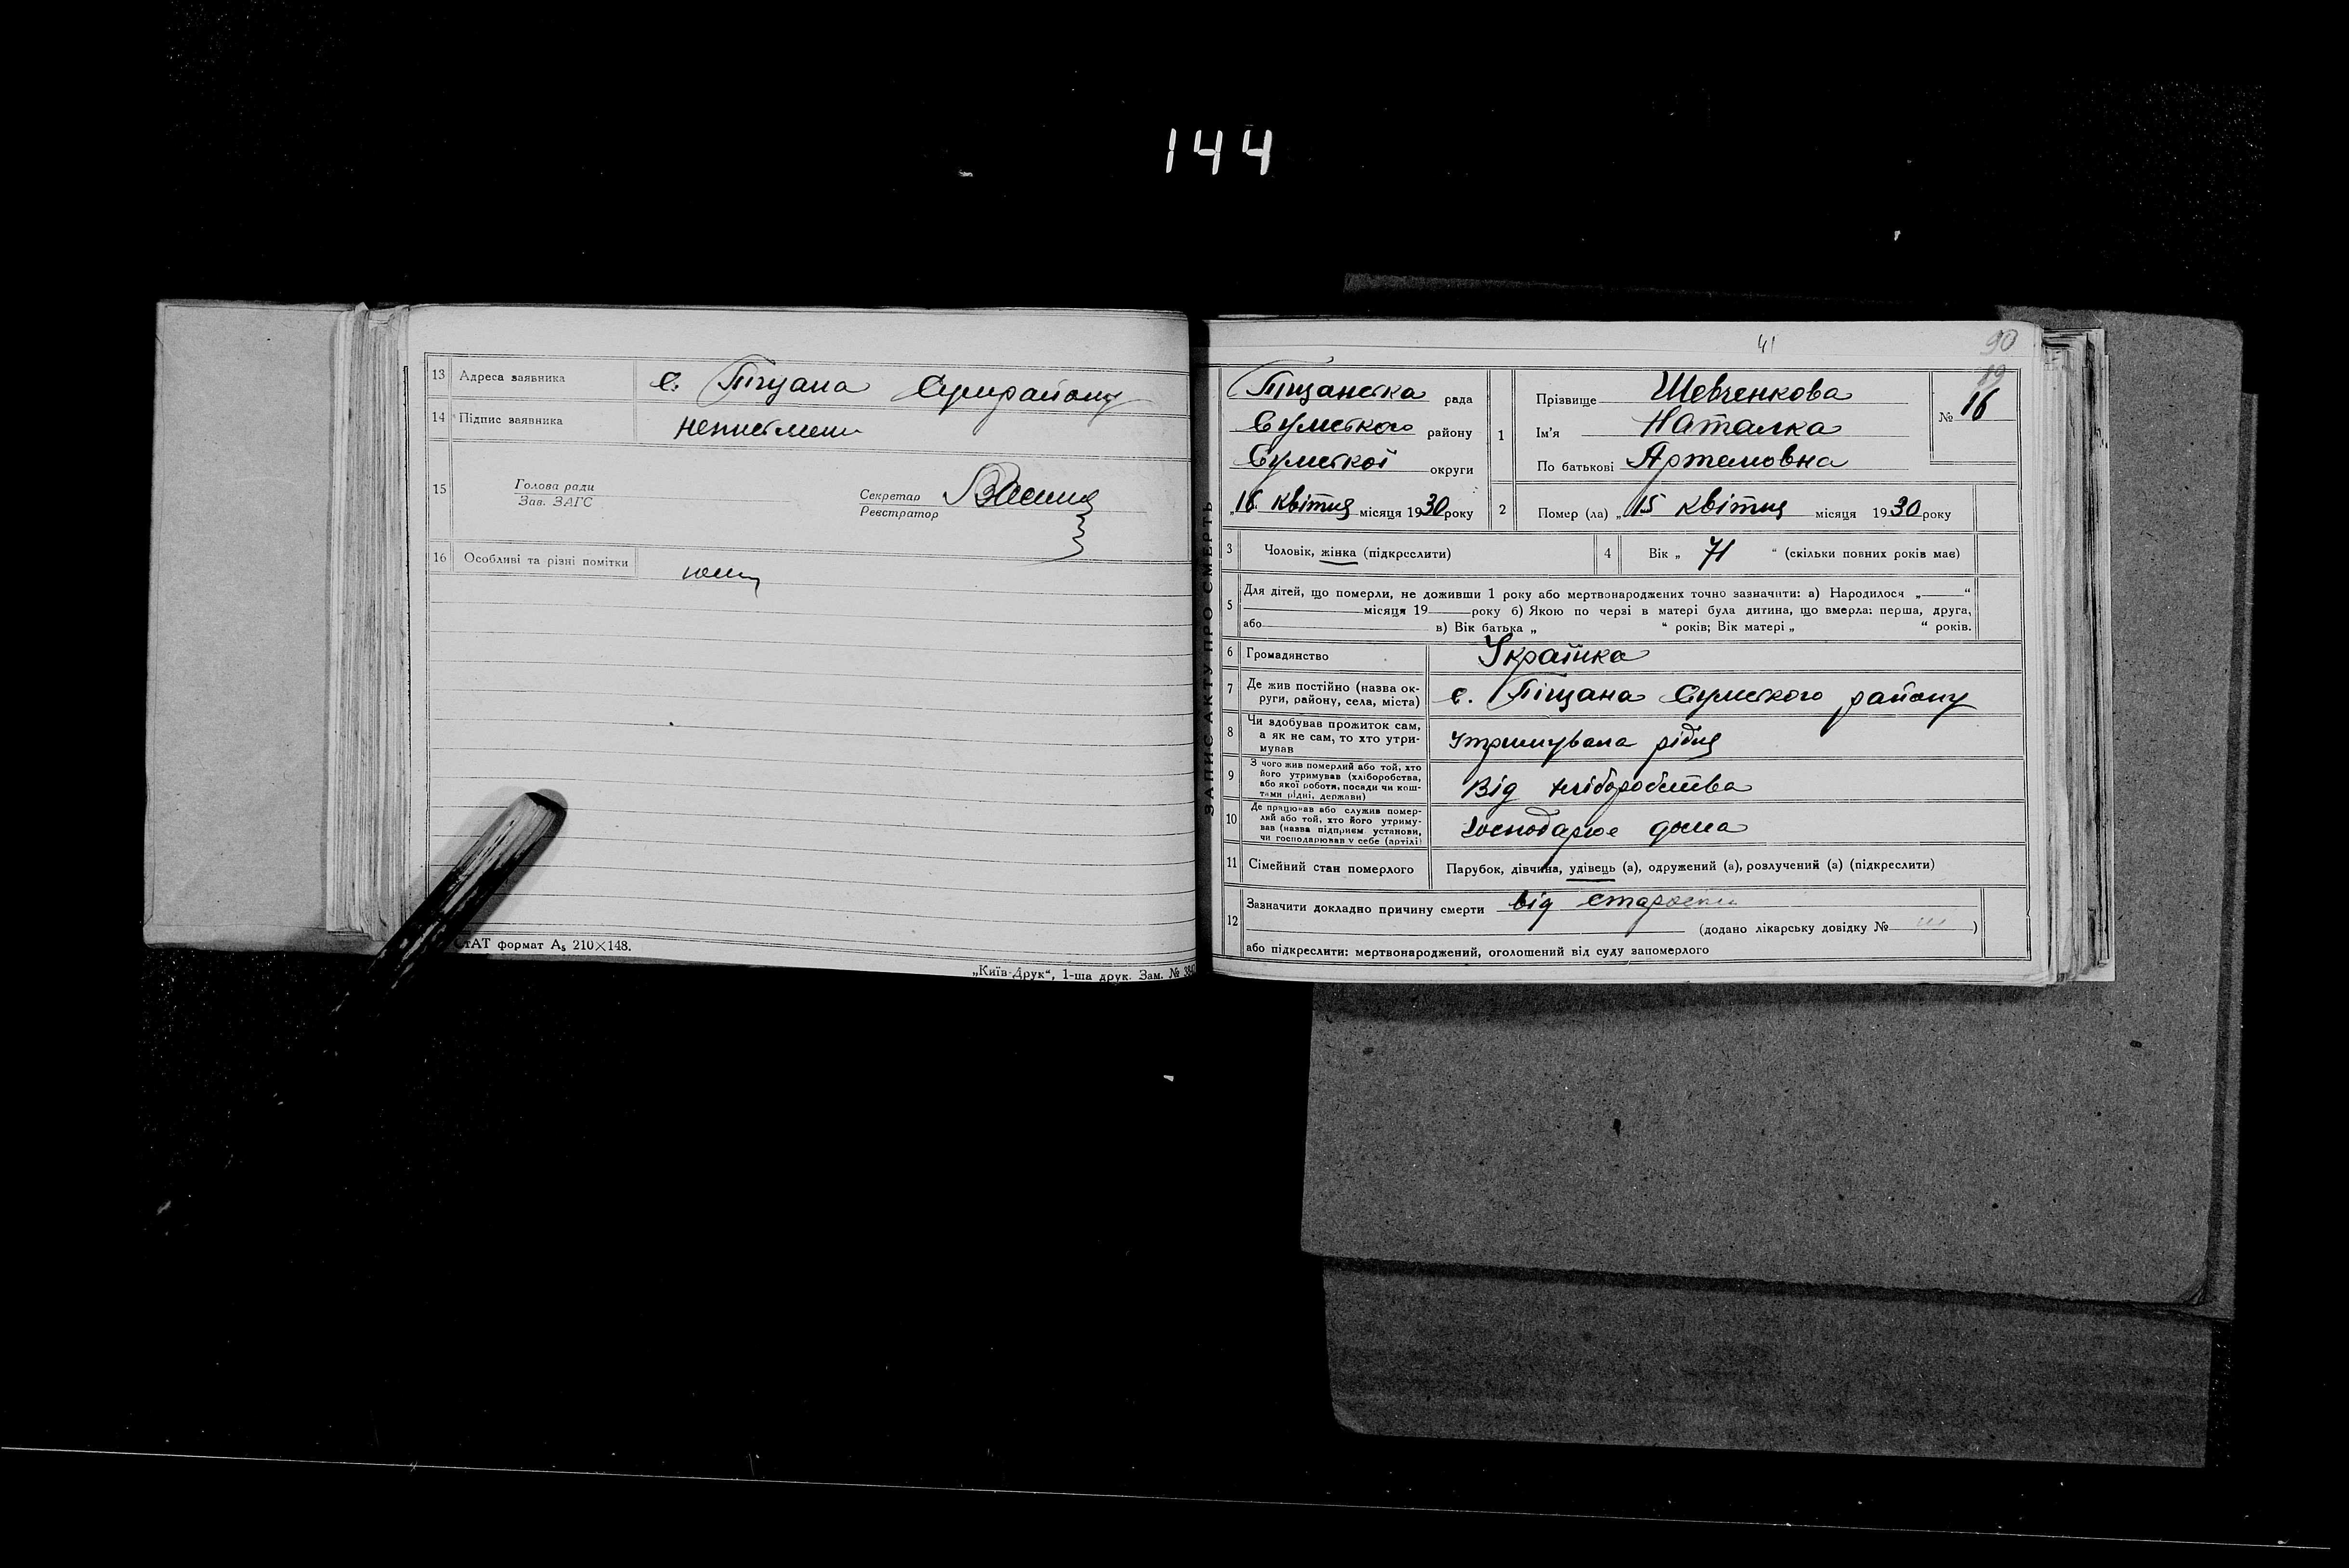 144
13 Адреса заявника с. Піщана Сумрайону
14 Підпис заявника неписьмени
15 Голова ради
Зав. ЗАГС
Секретар
Реєстратор
16 Особливі та різні помітки
СТАТ формат А₅ 210×148.
„Київ-Друк“, 1-ша друк. Зам. №
ЗАПИС АКТУ ПРО СМЕРТЬ
41
90
89
Піщанська рада
Сумського району
Сумської округи
„16 квітня місяця 1930 року
1 Прізвище Шевченкова
Ім'я Наталка
По батькові Артемовна
№ 16
2 Помер (ла) „15 квітня місяця 1930 року
3 Чоловік, жінка (підкреслити)
4 Вік „ 71 “ (скільки повних років має)
5 Для дітей, що померли, не доживши 1 року або мертвонароджених точно зазначити: а) Народилося „ “
місяця 19 року б) Якою по черзі в матері була дитина, що вмерла: перша, друга,
або в) Вік батька „ “ років; Вік матері „ “ років.
6 Громадянство Українка
7 Де жив постійно (назва ок-
руги, району, села, міста) с. Піщана Сумського району
8 Чи здобував прожиток сам,
а як не сам, то хто утри-
мував Утримувала рідня
9 З чого жив померлий або той, хто
його утримував (хліборобства,
або якої роботи, посади чи кош-
тами рідні, держави) Від хліборобства
10 Де працював або служив помер-
лий або той, хто його утриму-
вав (назва підприєм установи,
чи господарював у себе (артілі) Господарює дома
11 Сімейний стан померлого Парубок, дівчина, удівець (а), одружений (а), розлучений (а) (підкреслити)
12 Зазначити докладно причину смерти від старости
(додано лікарську довідку № )
або підкреслити: мертвонароджений, оголошений від суду запомерлого